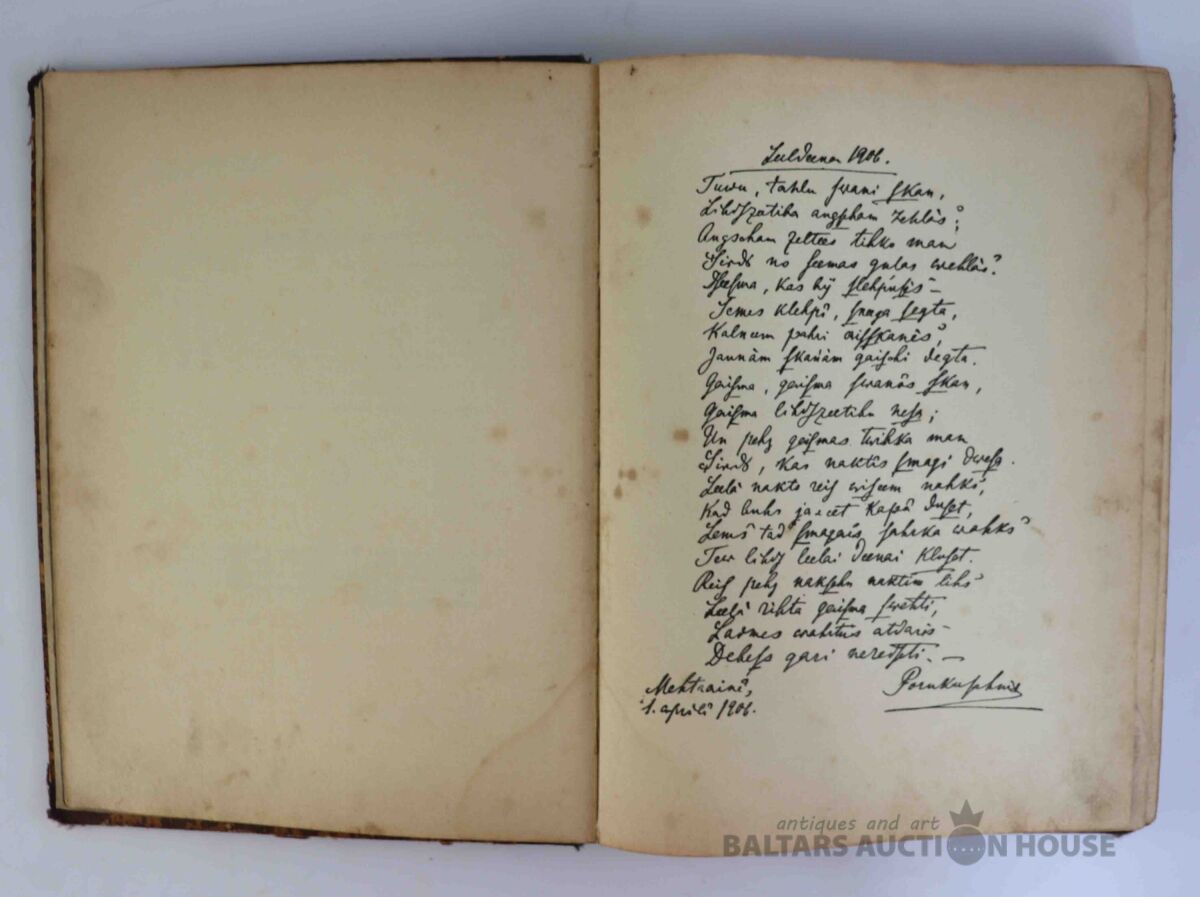 Leeldeenas 1906.
Tuwu, tahlu swani skan,
Lihdszeetiba augscham zehlâs;
Augscham zeltees tihko man
Sirds no seemas gulas wehlâs?
Dseesma, kas bij slehpusês –
Semes klehpî, snega segta,
Kalneem pahri aisskanês,
Jaunâm skaņâm gaischi degta.
Gaisma, gaisma swanôs skan,
Gaisma lihdszeetibu nesa;
Un pehz gaismas twihka man
Sirds, kas naktîs smagi dwesa.
Leelâ nakts reis wiseem nahks,
Kad buhs jaeet kapâ duset,
Zems tad smagais sahrka wahks
Tew lihds leelai deenai kluset.
Reis pehz nakschu naktîm lihs
Leelâ rihta gaisma swehti,
Laimes wahrtus atdarîs
Debess gari neredseti. –
Mehtrainê,
1. aprilî 1906.
Poruku Jahnis
antiques and art
BALTARS AUCTION HOUSE